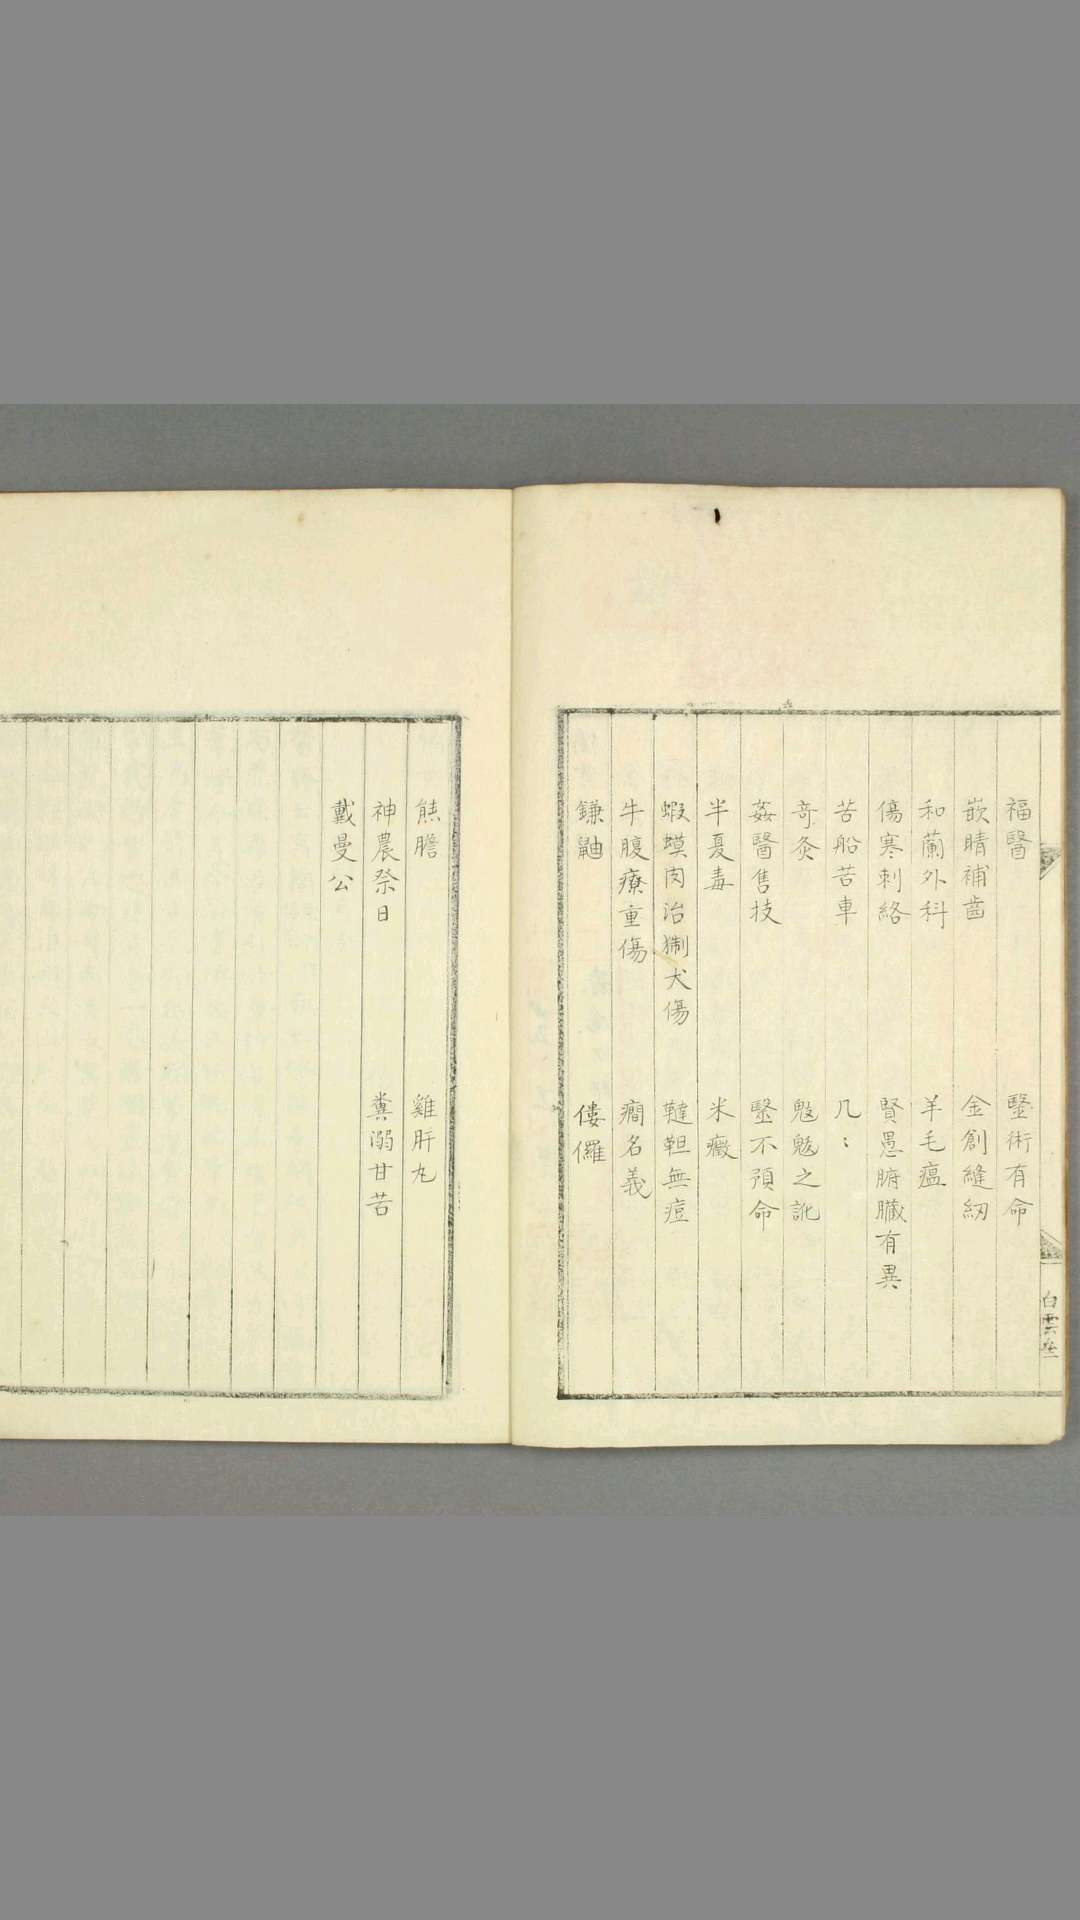 福醫　毉術有命
嵌睛補齒　金創縫紉
和蘭外科　羊毛瘟
傷寒刺絡　賢愚腑臟有異
苦船苦車　几〻
奇灸　之訛
姦醫售技　毉不預命
半夏毒　米癥
蝦蟆肉治猘犬傷　韃靼無痘
牛腹療重傷　癇名義
鎌鼬　僂儸
白雲
熊膽　雞肝丸
神農祭日　糞溺甘苦
戴曼公